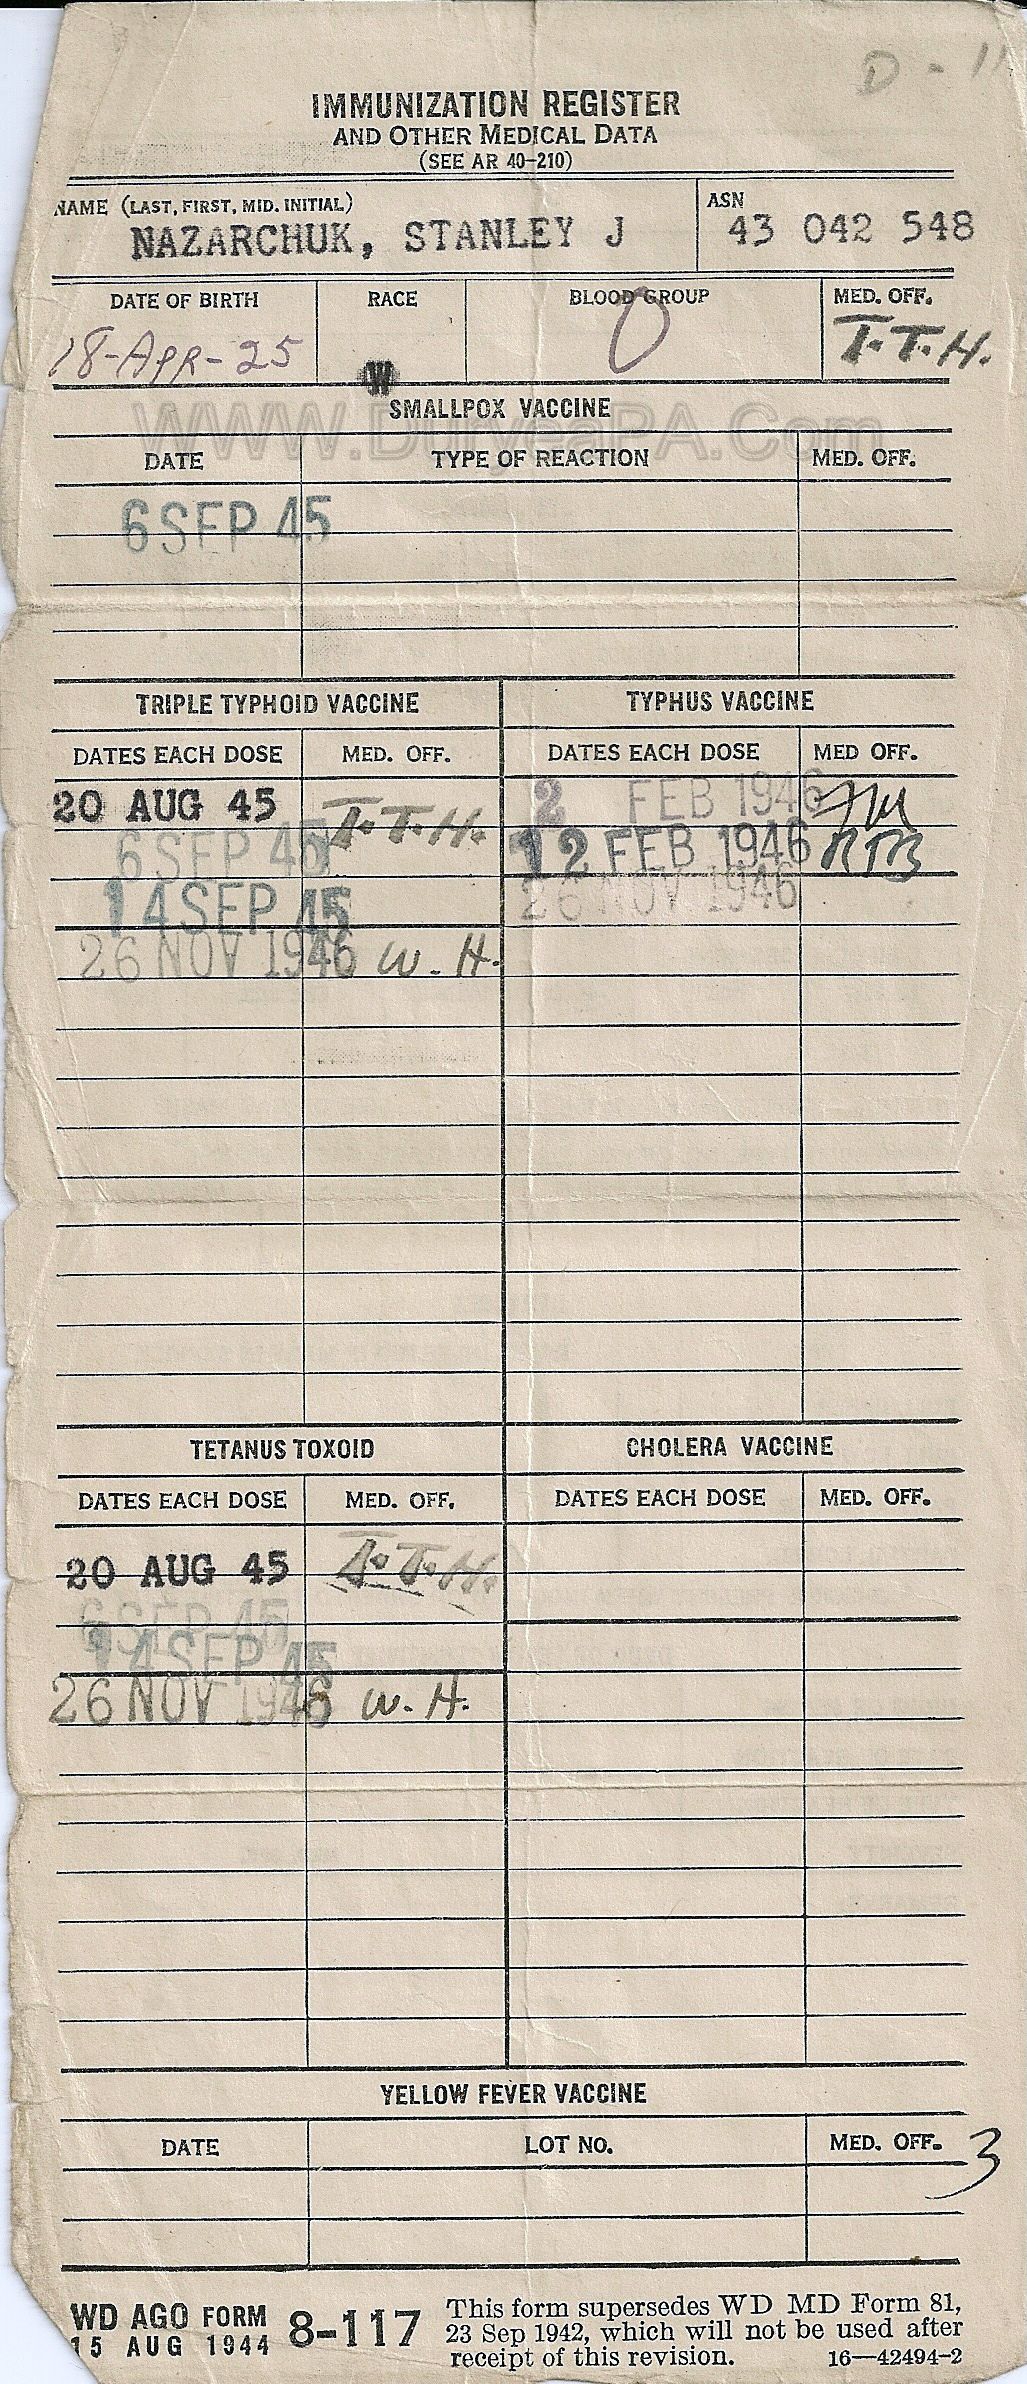 D - 11
IMMUNIZATION REGISTER
AND OTHER MEDICAL DATA
(SEE AR 40-210)
NAME (LAST, FIRST, MID. INITIAL) ASN
NAZARCHUK, STANLEY J 43 042 548
DATE OF BIRTH RACE BLOOD GROUP MED. OFF.
18-Apr-25 W O T.T.H.
WWW.DuryeaPA.Com
SMALLPOX VACCINE
DATE TYPE OF REACTION MED. OFF.
6 SEP 45
TRIPLE TYPHOID VACCINE TYPHUS VACCINE
DATES EACH DOSE MED. OFF. DATES EACH DOSE MED OFF.
20 AUG 45 T.T.H. 2 FEB 1946
6 SEP 45 12 FEB 1946 RTB
14 SEP 45 26 NOV 1946
26 NOV 1946 W.H.
TETANUS TOXOID CHOLERA VACCINE
DATES EACH DOSE MED. OFF. DATES EACH DOSE MED. OFF.
20 AUG 45 T.T.H.
6 SEP 45
14 SEP 45
26 NOV 1946 W.H.
YELLOW FEVER VACCINE
DATE LOT NO. MED. OFF. 3
WD AGO FORM 8-117 This form supersedes WD MD Form 81,
15 AUG 1944 23 Sep 1942, which will not be used after
receipt of this revision. 16—42494-2